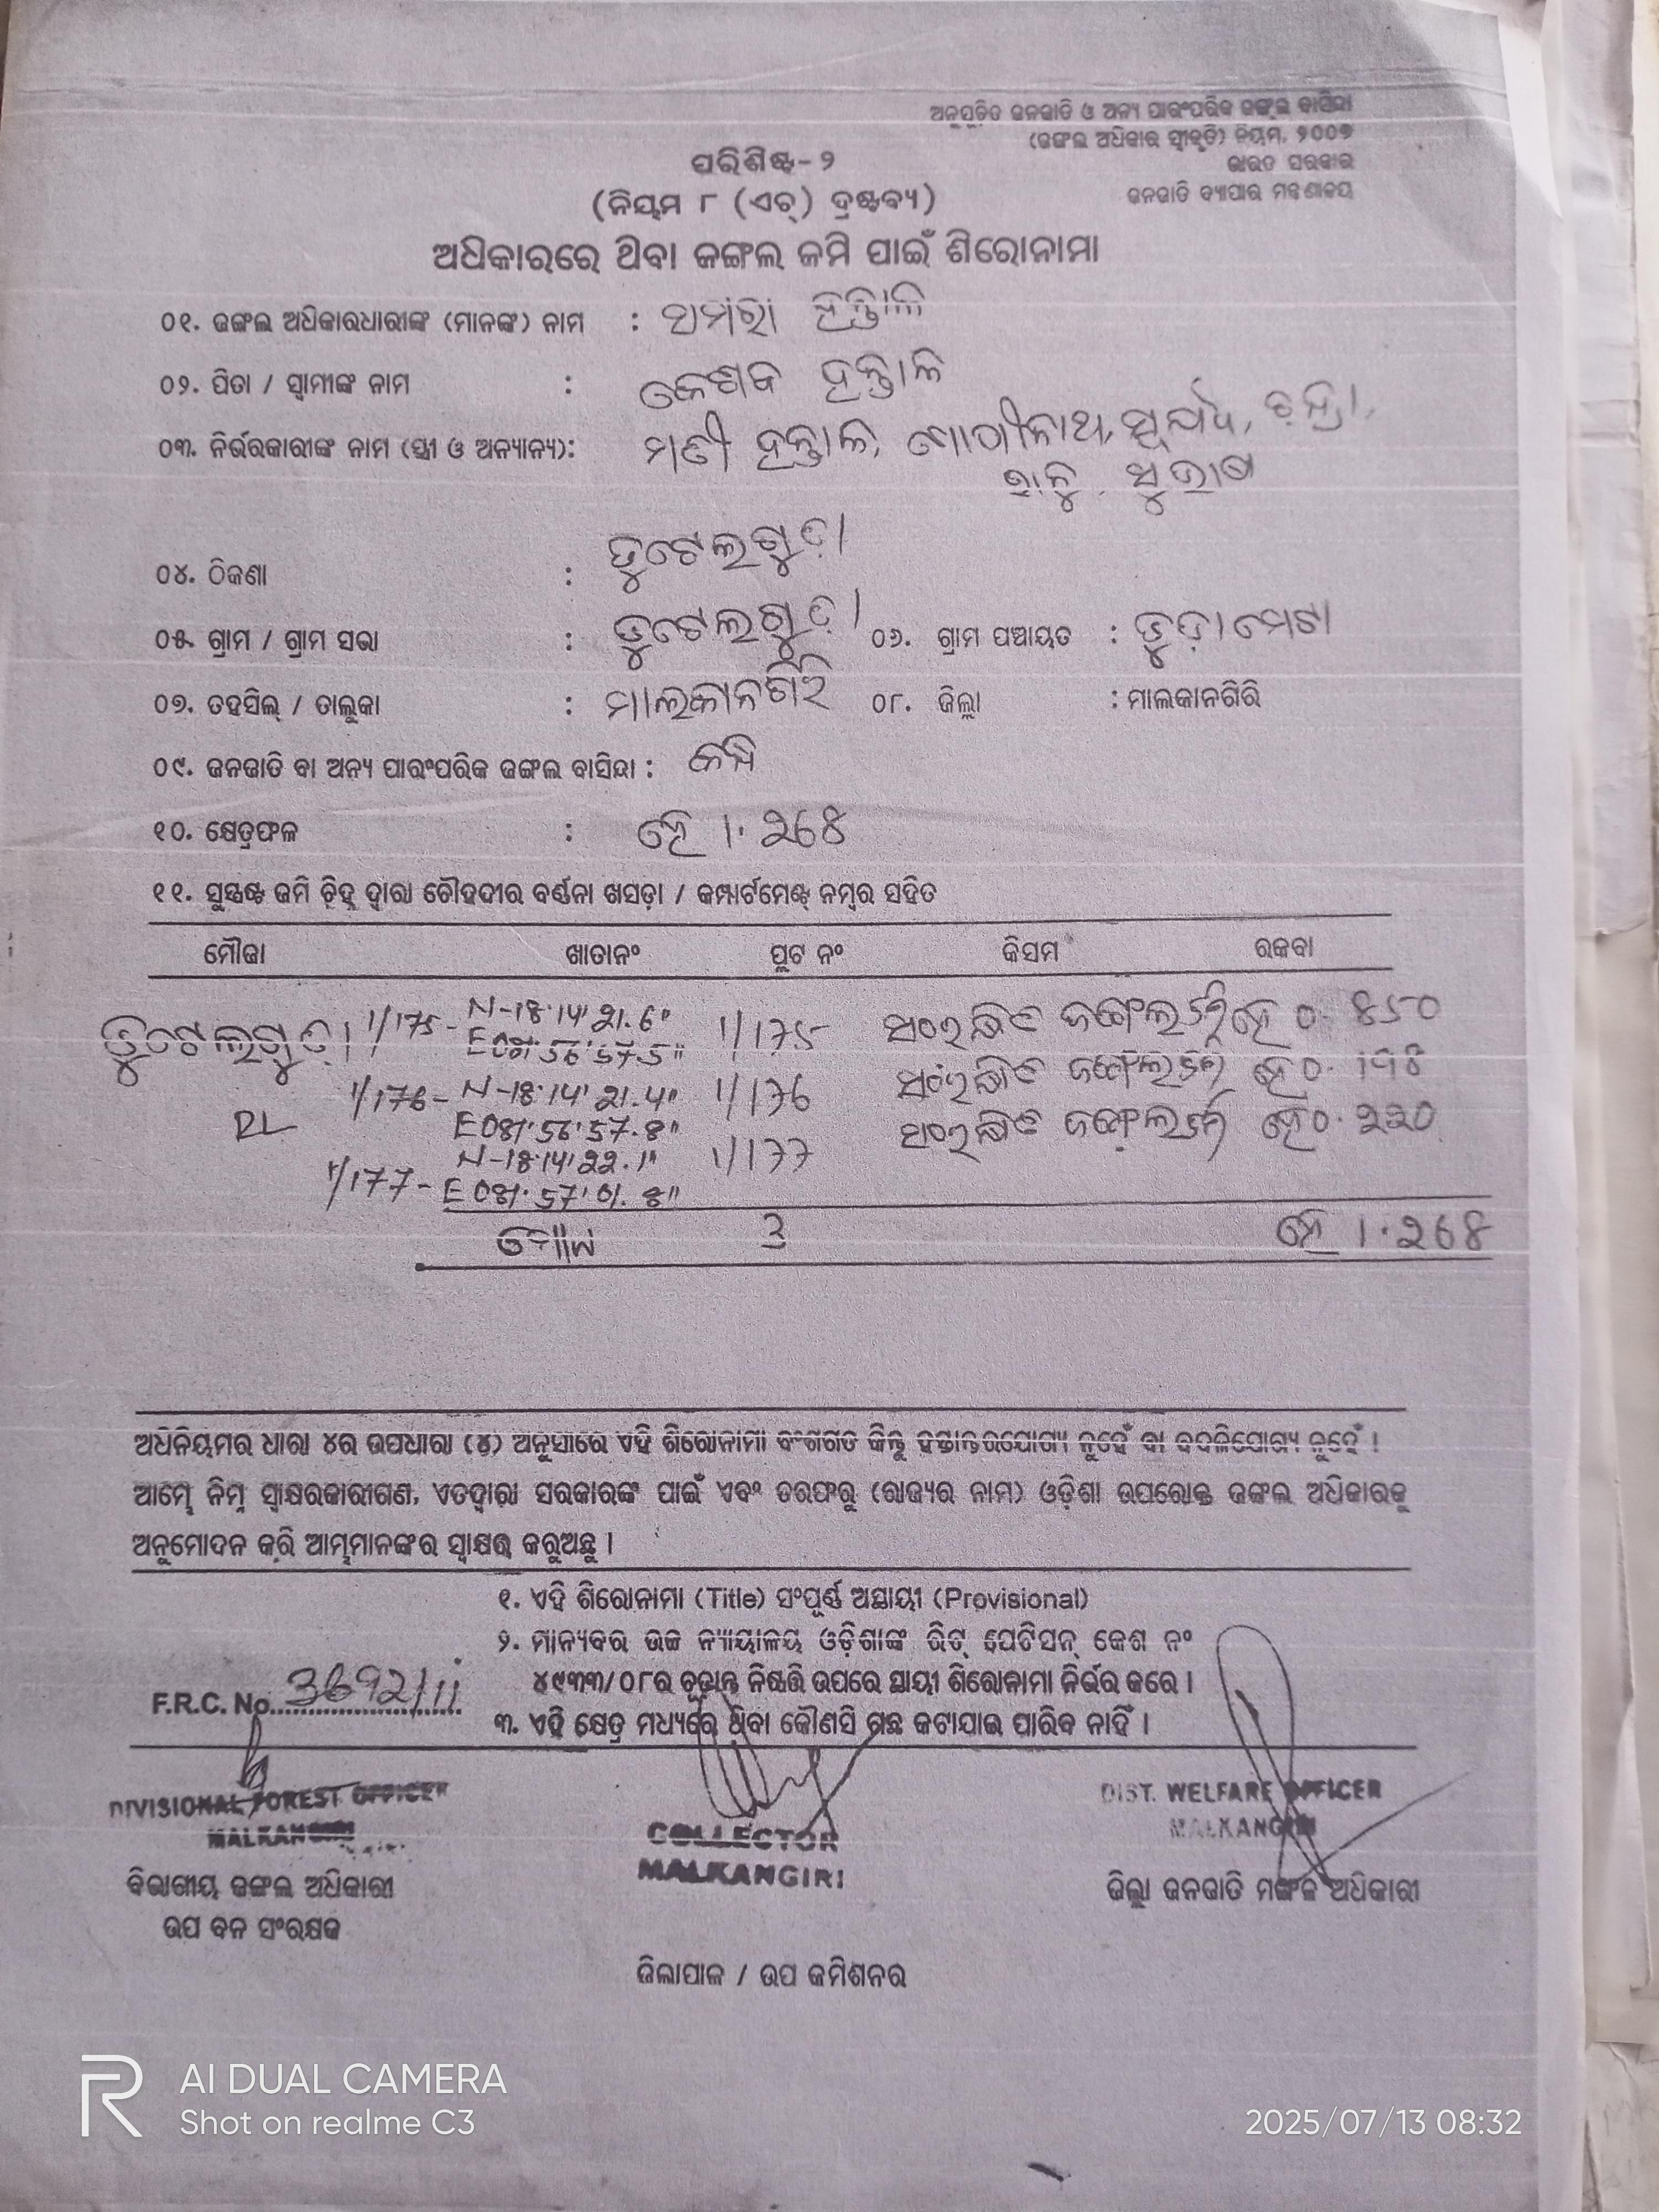 ଅନୁସୂଚିତ ଜନଜାତି ଓ ଅନ୍ୟ ପାରଂପରିକ ଜଙ୍ଗଲ ବାସିନ୍ଦା
(ଜଙ୍ଗଲ ଅଧିକାର ସ୍ୱୀକୃତି) ନିୟମ, ୨୦୦୭
ଭାରତ ସରକାର
ଜନଜାତି ବ୍ୟାପାର ମନ୍ତ୍ରଣାଳୟ
ପରିଶିଷ୍ଟ - ୨
(ନିୟମ ୮ (ଏଚ୍) ଦ୍ରଷ୍ଟବ୍ୟ)
ଅଧିକାରରେ ଥିବା ଜଙ୍ଗଲ ଜମି ପାଇଁ ଶିରୋନାମା
୦୧. ଜଙ୍ଗଲ ଅଧିକାରଧାରୀଙ୍କ (ମାନଙ୍କ) ନାମ : ହନ୍ତାଳ
୦୨. ପିତା / ସ୍ୱାମୀଙ୍କ ନାମ : କେଶବ ହନ୍ତାଳ
୦୩. ନିର୍ଭରକାରୀଙ୍କ ନାମ (ସ୍ତ୍ରୀ ଓ ଅନ୍ୟାନ୍ୟ): ହନ୍ତାଳ,
ସୁଭାଷ
୦୪. ଠିକଣା :
୦୫. ଗ୍ରାମ / ଗ୍ରାମ ସଭା : ୦୬. ଗ୍ରାମ ପଞ୍ଚାୟତ :
୦୭. ତହସିଲ୍ / ତାଲୁକା : ମାଲକାନଗିରି ୦୮. ଜିଲ୍ଲା : ମାଲକାନଗିରି
୦୯. ଜନଜାତି ବା ଅନ୍ୟ ପାରଂପରିକ ଜଙ୍ଗଲ ବାସିନ୍ଦା :
୧୦. କ୍ଷେତ୍ରଫଳ : ହେ 1.268
୧୧. ସୁସ୍ପଷ୍ଟ ଜମି ଚିହ୍ନ ଦ୍ୱାରା ଚୌହଦୀର ବର୍ଣ୍ଣନା ଖସଡ଼ା / କମ୍ପାର୍ଟମେଣ୍ଟ ନମ୍ବର ସହିତ
ମୌଜା ଖାତାନଂ ପ୍ଲଟ ନଂ କିସମ ରକବା
1/175- N-18°14'21.6" 1/175 ହେ 0.850
E081°56'57.5"
1/176- N-18°14'21.4" 1/176 ହେ 0.198
E081°56'57.8"
1/177- N-18°14'22.1" 1/177 ହେ 0.220
E081°57'01.8"
3 ହେ 1.268
ଅଧିନିୟମର ଧାରା ୪ର ଉପଧାରା (୪) ଅନୁସାରେ ଏହି ଶିରୋନାମା ବଂଶଗତ କିନ୍ତୁ ହସ୍ତାନ୍ତରଯୋଗ୍ୟ ନୁହେଁ ବା ବଦଳିଯୋଗ୍ୟ ନୁହେଁ ।
ଆମ୍ଭେ ନିମ୍ନ ସ୍ୱାକ୍ଷରକାରୀଗଣ, ଏତଦ୍ୱାରା ସରକାରଙ୍କ ପାଇଁ ଏବଂ ତରଫରୁ (ରାଜ୍ୟର ନାମ) ଓଡ଼ିଶା ଉପରୋକ୍ତ ଜଙ୍ଗଲ ଅଧିକାରକୁ
ଅନୁମୋଦନ କରି ଆମ୍ଭମାନଙ୍କର ସ୍ୱାକ୍ଷର କରୁଅଛୁ ।
୧. ଏହି ଶିରୋନାମା (Title) ସଂପୂର୍ଣ୍ଣ ଅସ୍ଥାୟୀ (Provisional)
୨. ମାନ୍ୟବର ଉଚ୍ଚ ନ୍ୟାୟାଳୟ ଓଡ଼ିଶାଙ୍କ ରିଟ୍ ପେଟିସନ୍ କେଶ ନଂ
୪୯୩୩/୦୮ର ଚୂଡ଼ାନ୍ତ ନିଷ୍ପତ୍ତି ଉପରେ ସ୍ଥାୟୀ ଶିରୋନାମା ନିର୍ଭର କରେ ।
F.R.C. No. 3692/11
୩. ଏହି କ୍ଷେତ୍ର ମଧ୍ୟରେ ଥିବା କୌଣସି ଗଛ କଟାଯାଇ ପାରିବ ନାହିଁ ।
DIVISIONAL FOREST OFFICER
MALKANGIRI
ବିଭାଗୀୟ ଜଙ୍ଗଲ ଅଧିକାରୀ
ଉପ ବନ ସଂରକ୍ଷକ
COLLECTOR
MALKANGIRI
ଜିଲାପାଳ / ଉପ କମିଶନର
DIST. WELFARE OFFICER
MALKANGIRI
ଜିଲ୍ଲା ଜନଜାତି ମଙ୍ଗଳ ଅଧିକାରୀ
AI DUAL CAMERA
Shot on realme C3
2025/07/13 08:32